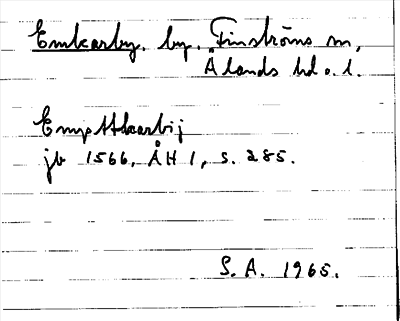 Emkarby, by, Finströms sn,
Ålands hd o. l.
Empttkarbij
jb 1566, ÅH 1, s. 285.
S. A. 1965.